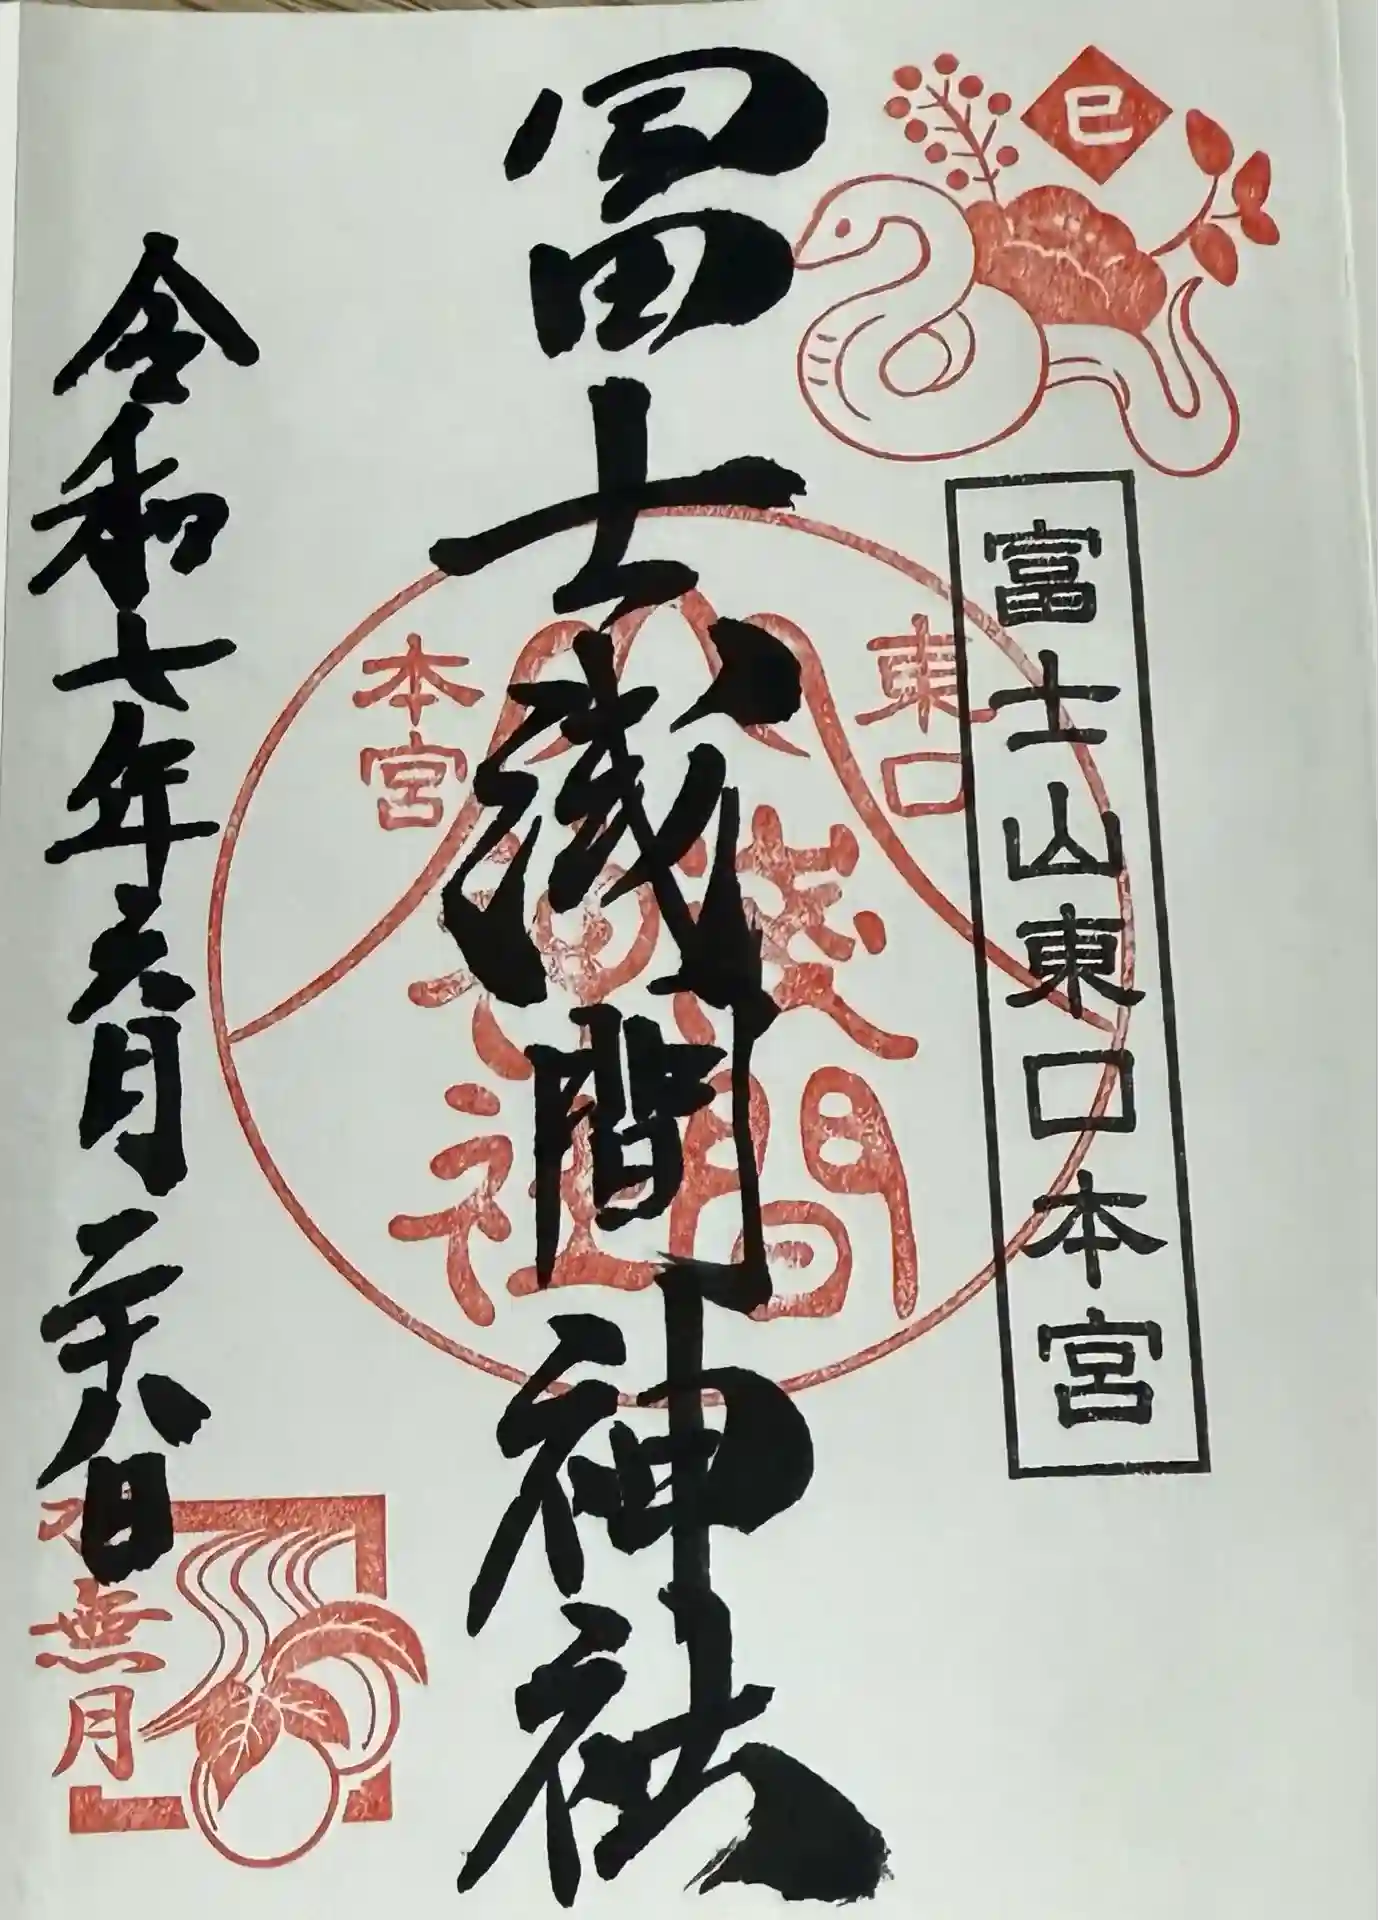 巳
富士山東口本宮
冨士浅間神社
東口
本宮
浅間
神社
令和七年六月二十八日
水無月